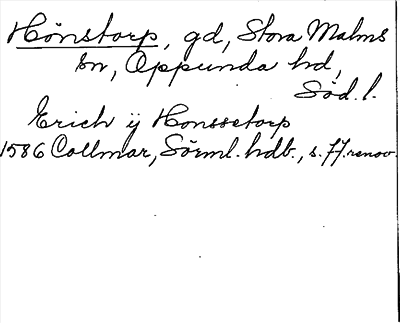 Hönstorp, gd, Stora Malms
sn, Oppunda hd,
Söd. l.
Erich ij Honssetorp
1586 Collmar, Sörml. hdb., s. 77. renov.